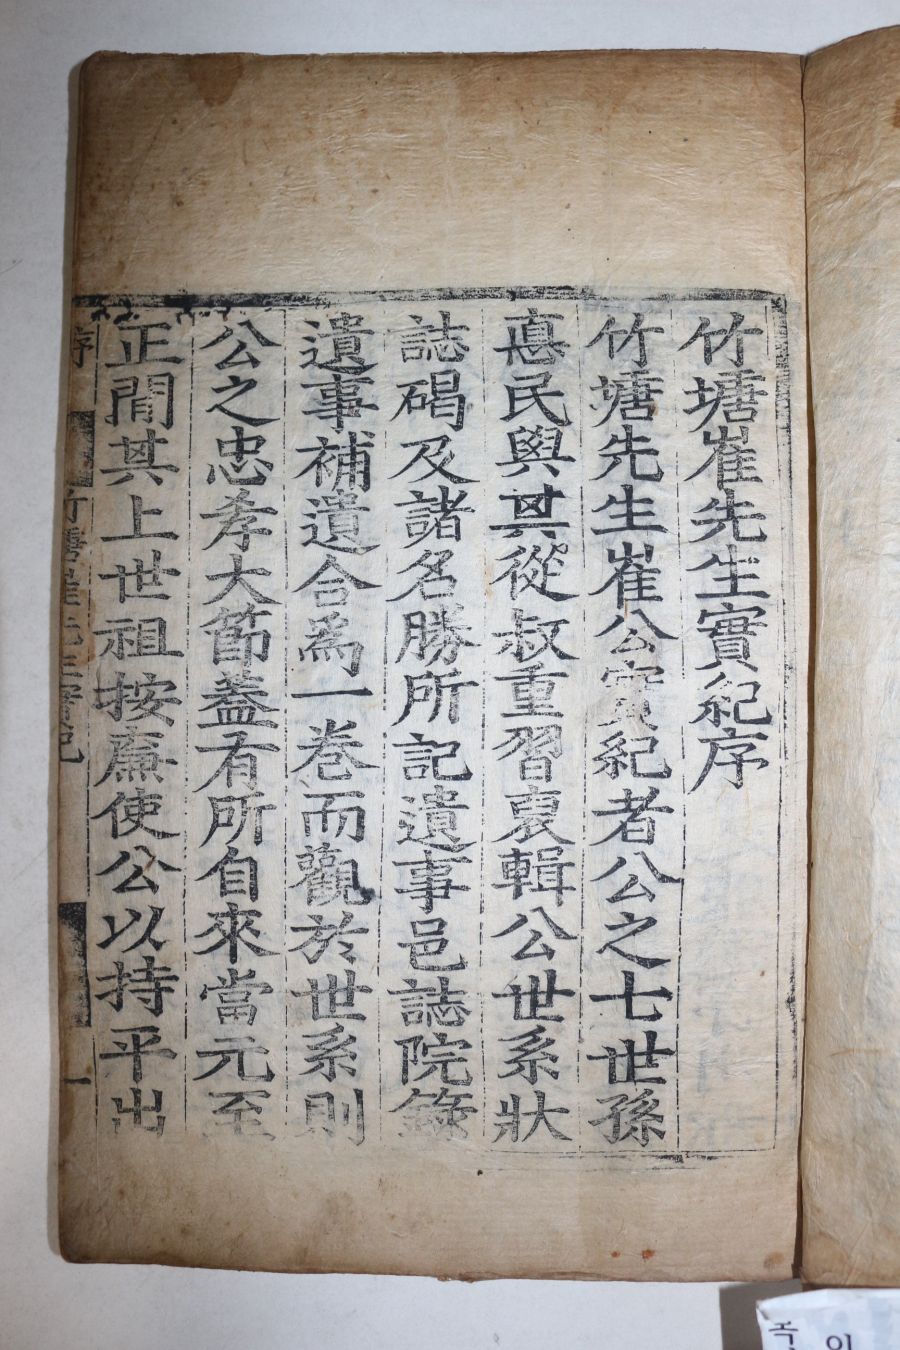 竹塘崔先生實紀序
竹塘先生崔公實紀者公之七世孫
悳民與其從叔重習裒輯公世系狀
誌碣及諸名勝所記遺事邑誌院錄
遺事補遺合爲一卷而觀於世系則
公之忠孝大節蓋有所自來當元至
正間其上世祖按廉使公以持平出
序
竹塘崔先生實紀
一
인